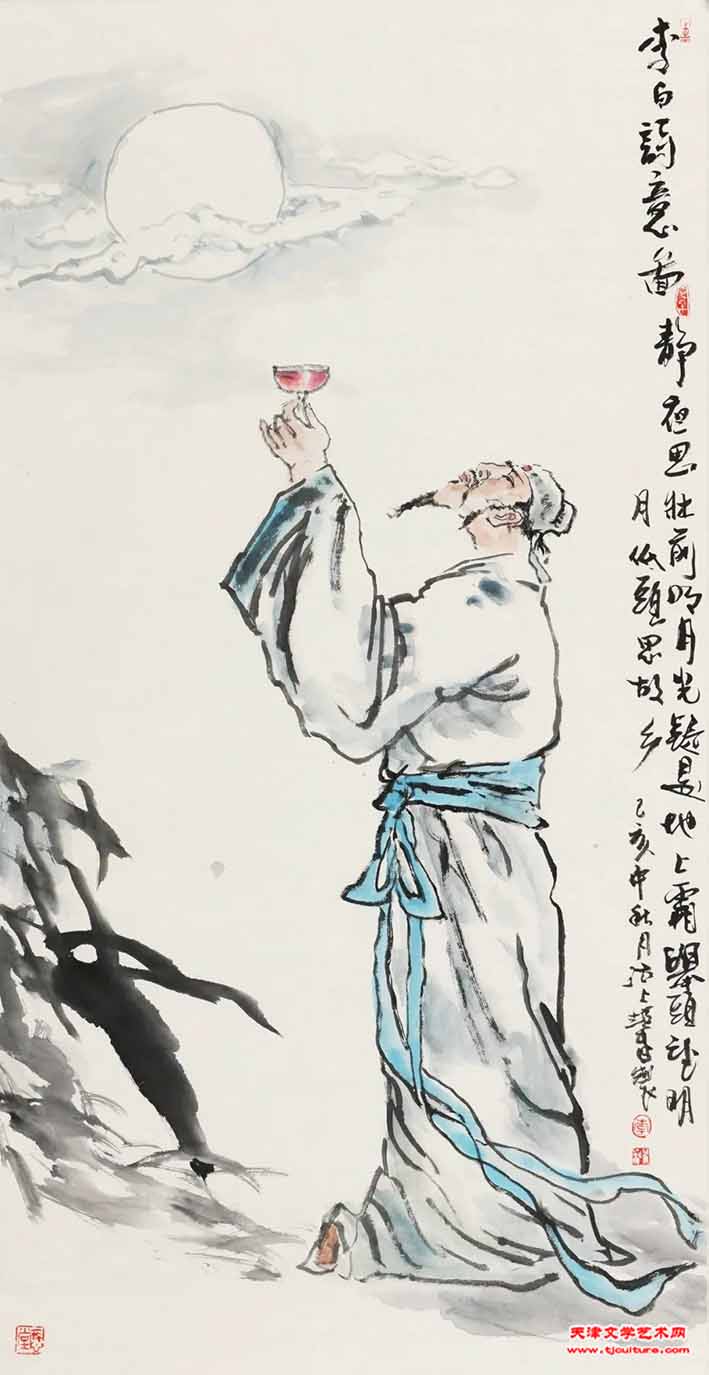 李白詩意圖
靜夜思牀前明月光疑是地上霜舉頭望明
月低頭思故乡
己亥中秋月沽上
天津文学艺术网
www.tjculture.com